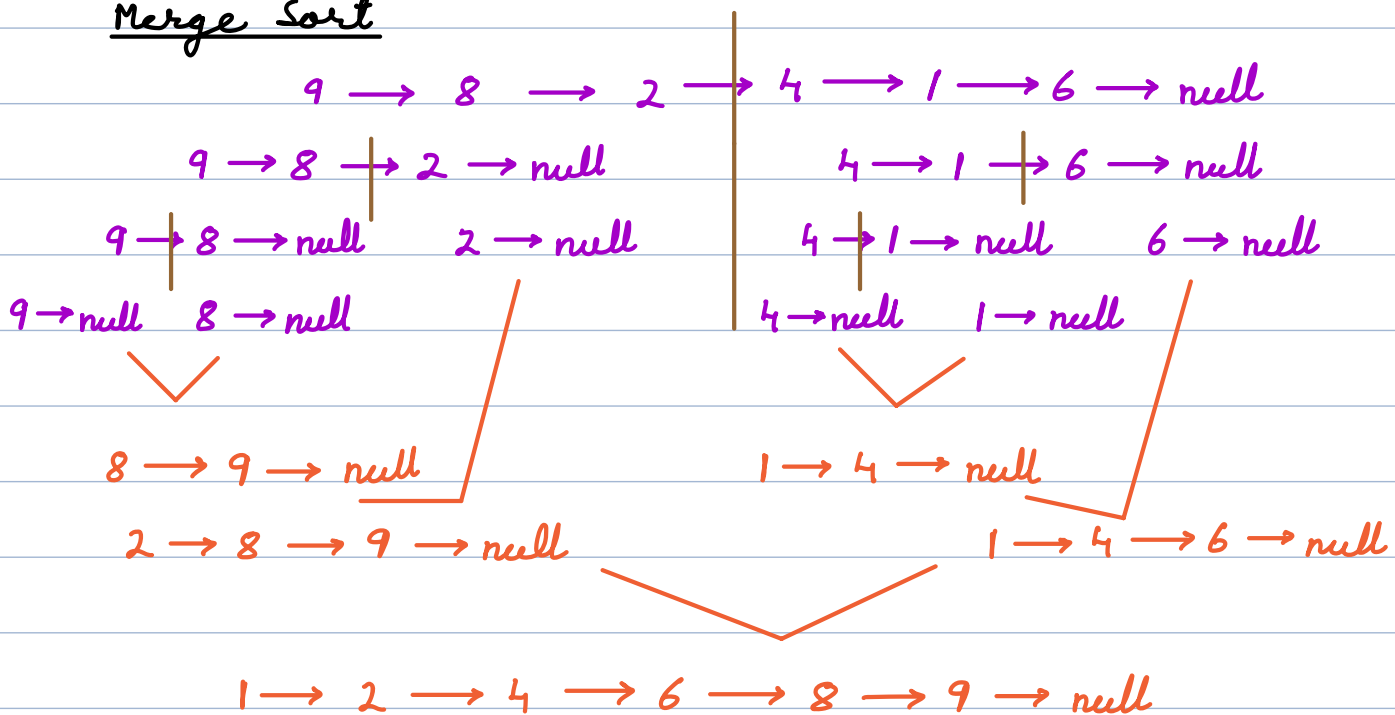 Merge Sort
9 → 8 → 2 → 4 → 1 → 6 → null
9 → 8 → 2 → null 4 → 1 → 6 → null
9 → 8 → null 2 → null 4 → 1 → null 6 → null
9 → null 8 → null 4 → null 1 → null
8 → 9 → null 1 → 4 → null
2 → 8 → 9 → null 1 → 4 → 6 → null
1 → 2 → 4 → 6 → 8 → 9 → null